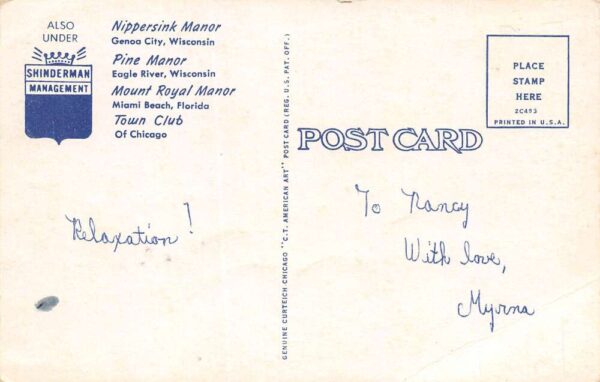 ALSO
UNDER
SHINDERMAN
MANAGEMENT
Nippersink Manor
Genoa City, Wisconsin
Pine Manor
Eagle River, Wisconsin
Mount Royal Manor
Miami Beach, Florida
Town Club
Of Chicago
Relaxation!
GENUINE CURTEICH-CHICAGO "C.T. AMERICAN ART" POST CARD (REG. U.S. PAT. OFF.)
POST CARD
PLACE
STAMP
HERE
2C453
PRINTED IN U.S.A.
To Nancy
With love,
Myrna